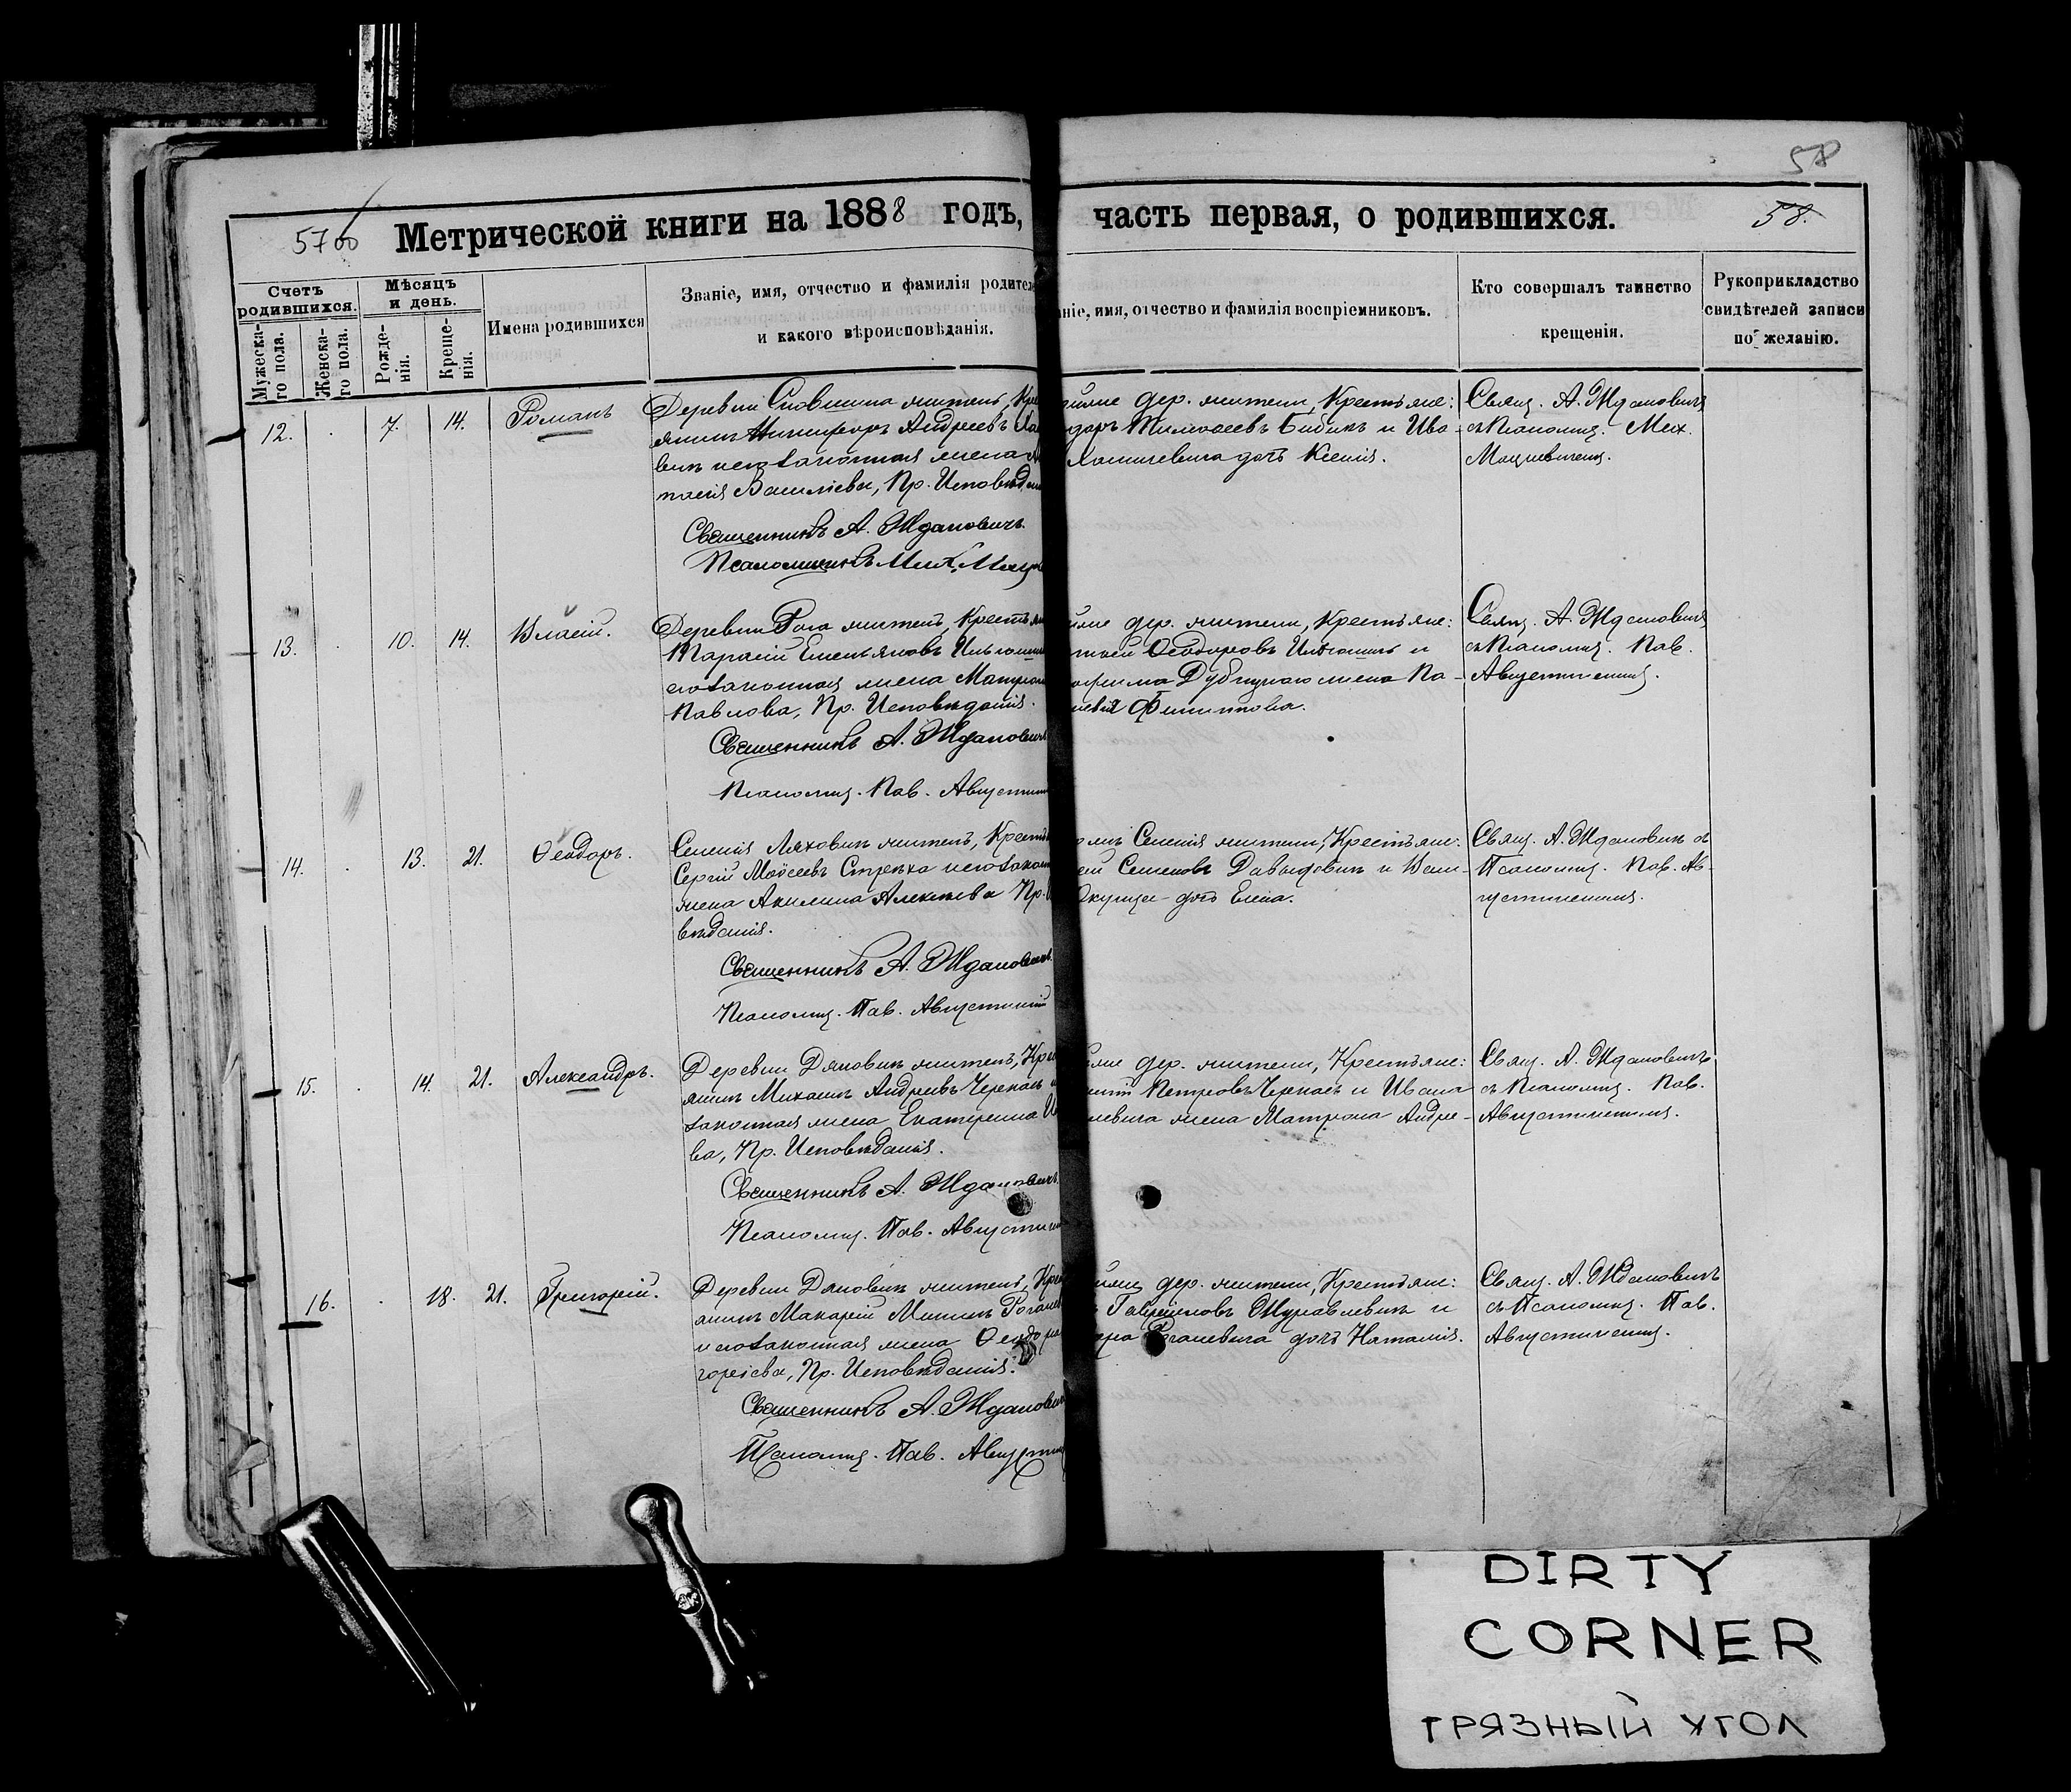 58
5706 Метрической книги на 1888 годъ, часть первая, о родившихся. 58.
Счетъ родившихся.
Мужеска-го пола.
Женска-го пола.
Мѣсяцъ и день.
Рожде-нія.
Креще-нія.
Имена родившихся
Званіе, имя, отчество и фамилія родител
и какого вѣроисповѣданія.
ніе, имя, отчество и фамилія воспріемниковъ.
Кто совершалъ таинство
крещенія.
Рукоприкладство
свидѣтелей записи
по желанію.
12. 7. 14. Романъ
Деревни житель, Кре
янинъ Никифоръ Андреевъ
вик и его законная жена
тасія Василіева, Пр. Исповѣдан
Священникъ А. Ждановичъ.
Псаломщикъ Мих. Мац
дер. жители, Крестьяне:
Тимоѳеевъ Бибикъ и Ива-
дочь Ксенія.
Свящ. А. Ждановичъ
съ Псаломщ. Мих.
Мацкевичемъ.
13. 10. 14. Власій.
Деревни Рога житель, Крестьян
Тарасій Емельяновъ
его законная жена Матрон
Павлова, Пр. Исповѣданія.
Священникъ А. Ждановичъ
Псаломщ. Пав. Августин
дер. жители, Крестьяне:
Ѳеодоровъ и
Дубицкаго жена Па-
Филиппова.
Свящ. А. Ждановичъ
съ Псаломщ. Пав.
Августиномъ.
14. 13. 21. Ѳеодоръ.
Селенія Ляховичъ житель, Крестьян
Сергій Моѵсеевъ Стрѣлка и его закон
жена Акилина Алексѣева Пр.
вѣданія.
Священникъ А. Ждановичъ.
Псаломщ. Пав. Августиній
Селенія жители, Крестьяне:
Семеновъ Давыдовичъ и Васи-
дочь Елена.
Свящ. А. Ждановичъ съ
Псаломщ. Пав. Ав-
густиномъ.
15. 14. 21. Александръ.
Деревни Дяковичъ житель, Крес
янинъ Михаилъ Андреевъ Черкасъ и
законная жена Екатерина
ва, Пр. Исповѣданія.
Священникъ А. Ждановичъ.
Псаломщ. Пав. Августин
дер. жители, Крестьяне:
Петровъ Черкасъ и Ивана
жена Матрона Андре-
Свящ. А. Ждановичъ
съ Псаломщ. Пав.
Августиномъ.
16. 18. 21. Григорій.
Деревни Дяковичъ житель, Кре
янинъ Макарій Мининъ
и его законная жена Ѳеодора
горіева, Пр. Исповѣданія.
Священникъ А. Ждановичъ
Псаломщ. Пав. Августин
дер. жители, Крестьяне:
Гавриловъ Журавлевичъ и
дочь Наталія.
Свящ. А. Ждановичъ
съ Псаломщ. Пав.
Августиномъ.
DIRTY
CORNER
ГРЯЗНЫЙ УГОЛ